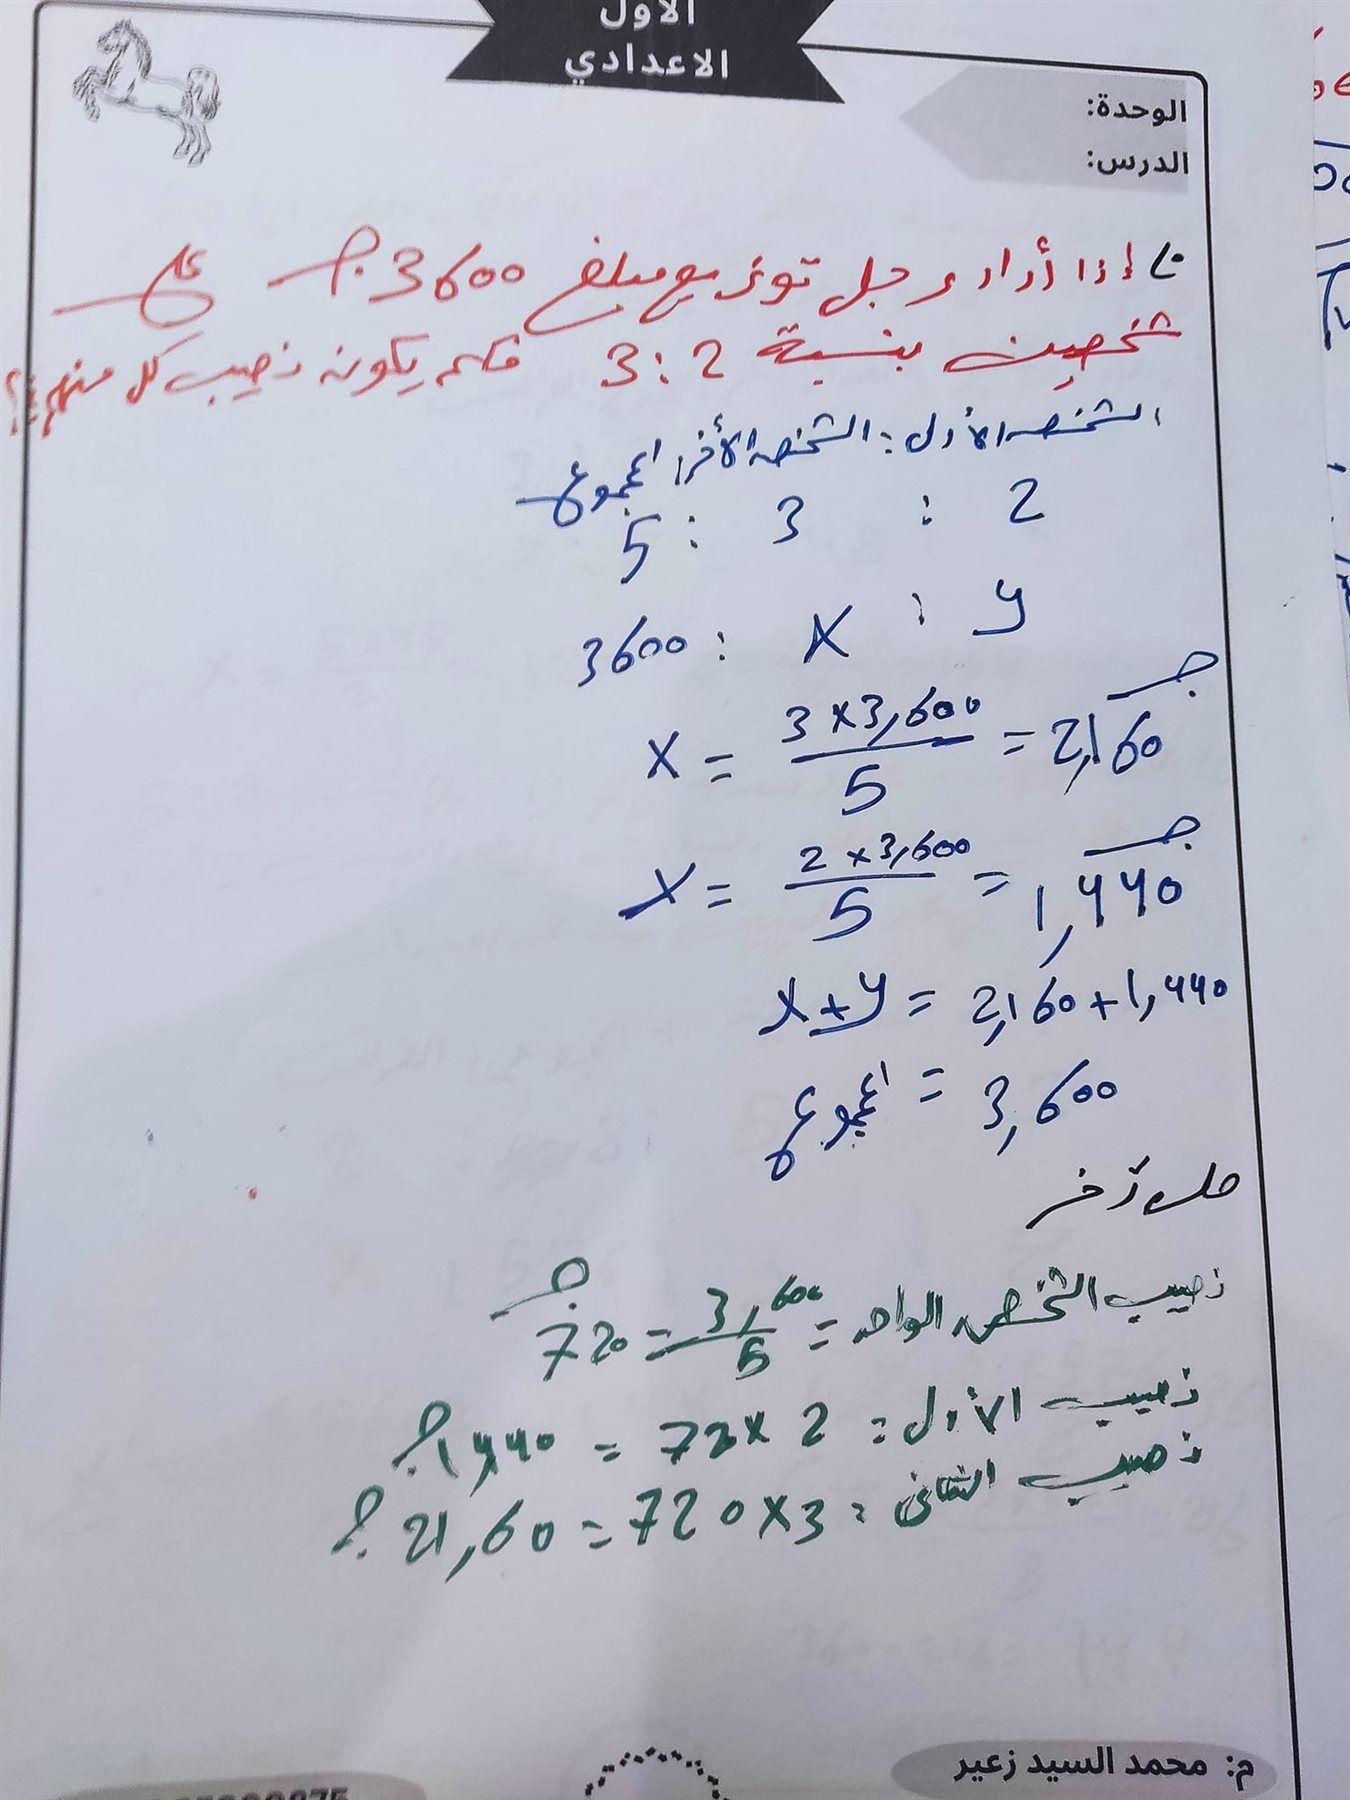 الأول
الاعدادي
الوحدة:
الدرس:
إذا أراد رجل توزيع مبلغ 3600 جـ على
شخصين بنسبة 2 : 3 فكم يكون نصيب كل منهم؟
الشخص الأول : الشخص الأخر : المجموع
2 : 3 : 5
y : x : 3600
x = \frac{3 \times 3,600}{5} = 2,160 جـ
x = \frac{2 \times 3,600}{5} = 1,440 جـ
x + y = 2,160 + 1,440
المجموع = 3,600
حل آخر
نصيب الشخص الواحد = \frac{3,600}{5} = 720 جـ
نصيب الأول = 2 × 720 = 1,440 جـ
نصيب الثاني = 3 × 720 = 21,60 جـ
م: محمد السيد زعير